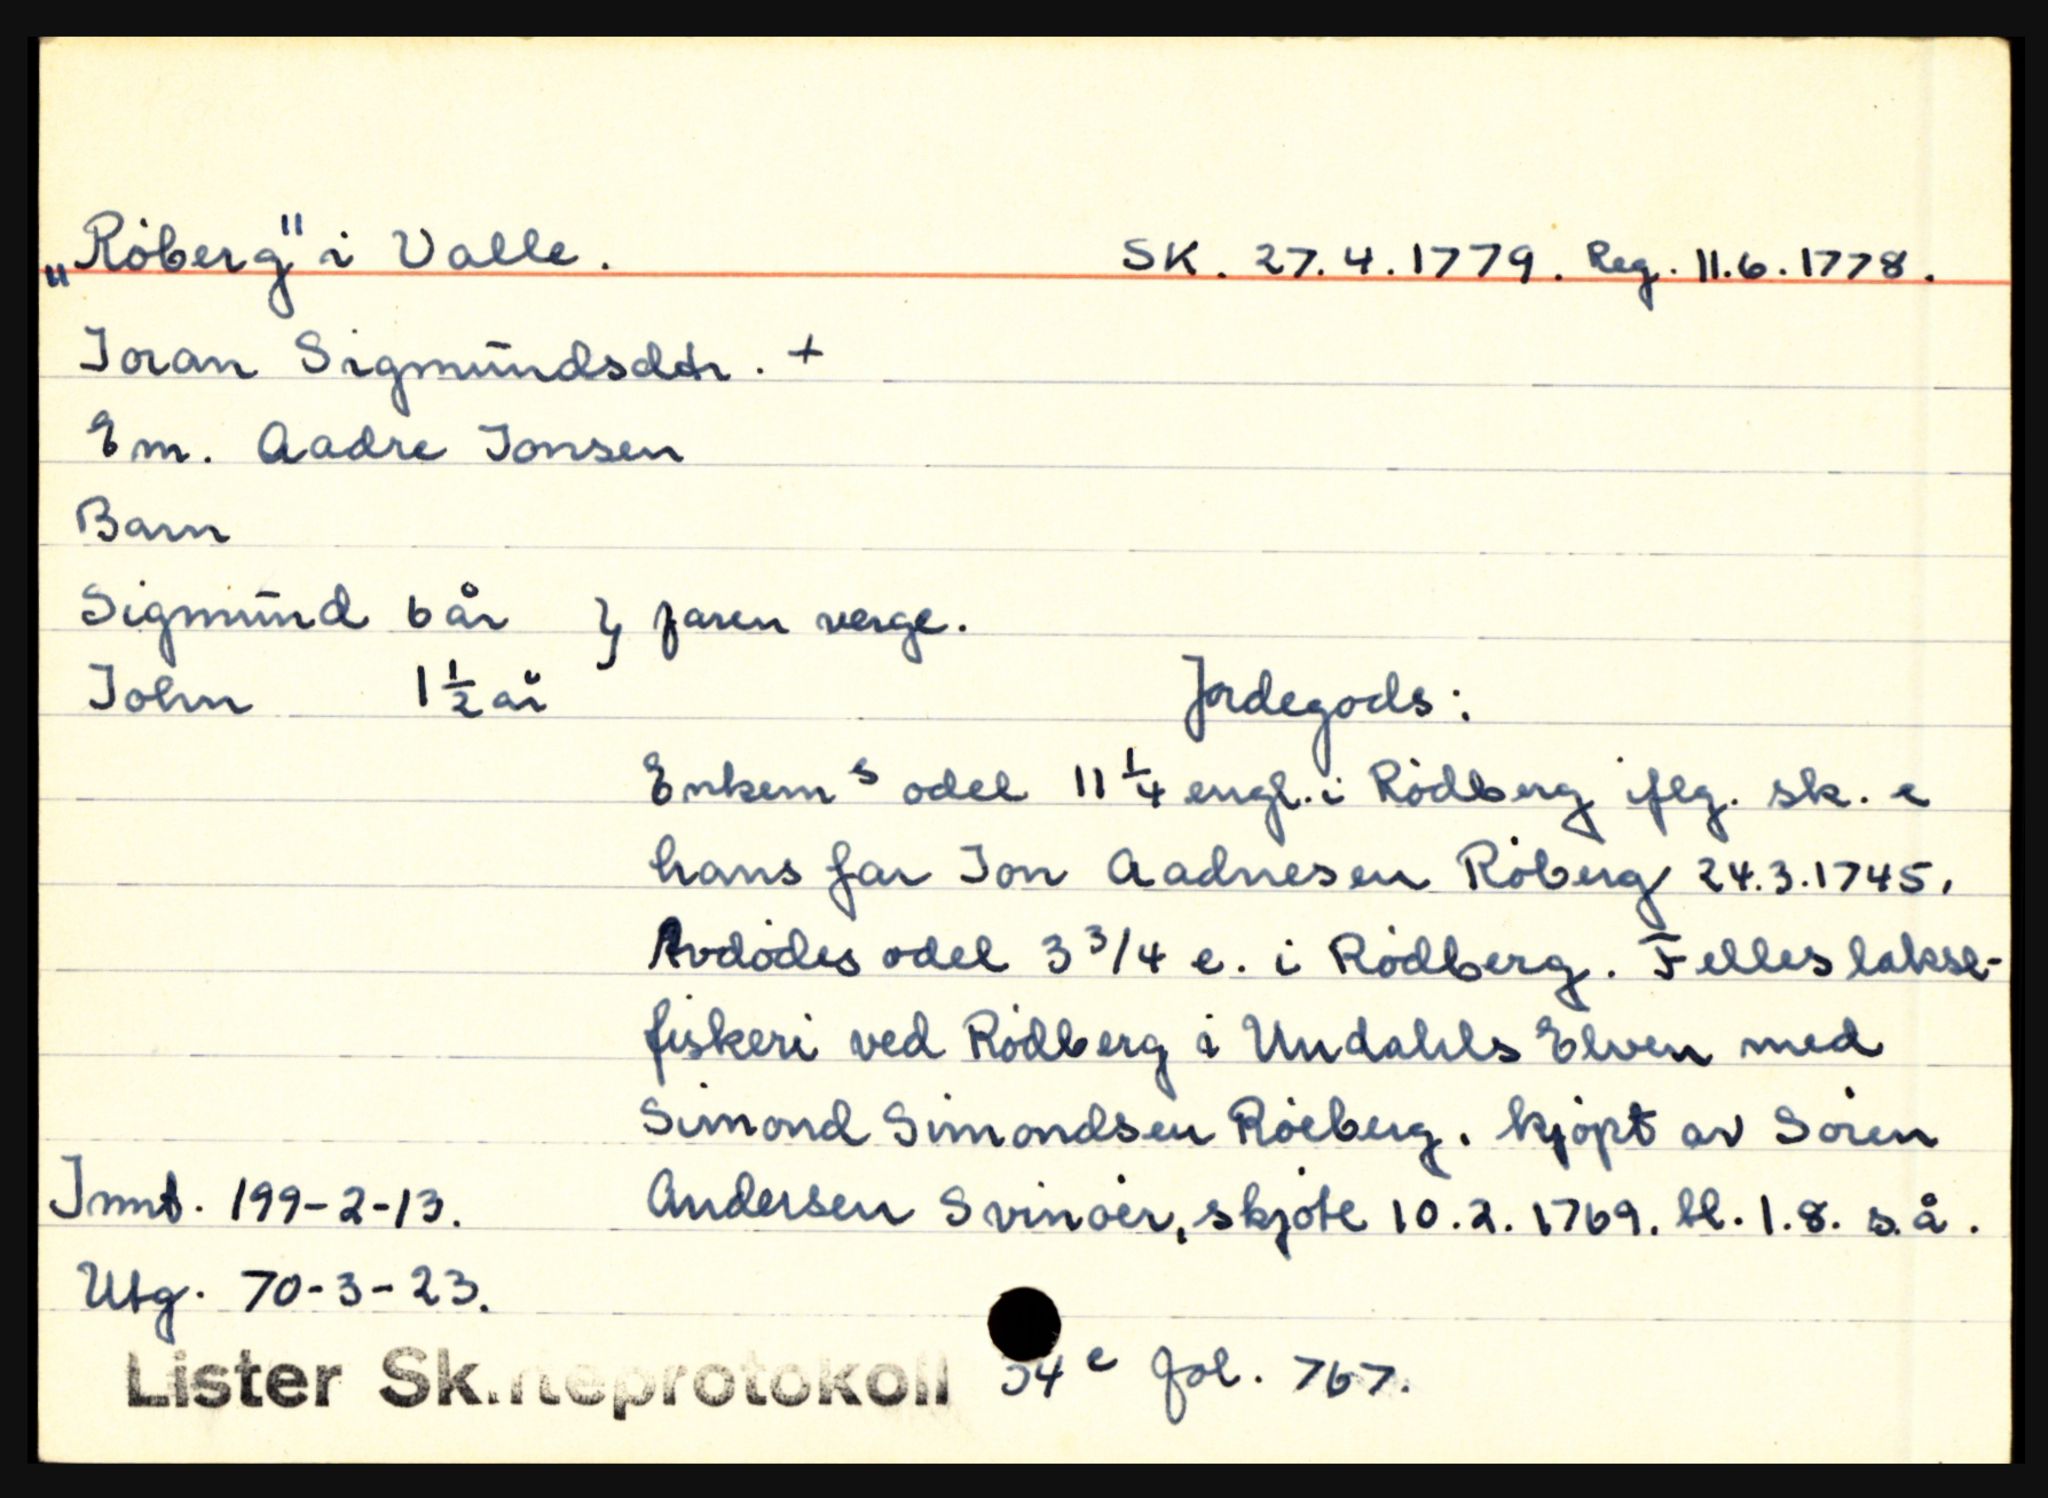 „Röberg" i Valle. SK. 27.4.1779. Reg. 11.6.1778.
Joran Sigmundsdtr. +
Em. Aadne Jonsen
Barn
Sigmund 6 år } faren verge.
John 1 1/2 år
Jordegods:
Enkem s odel 11 1/4 engl. i Rödberg iflg. sk. e
hans far Jon Aadnesen Röberg 24.3.1745.
Avdödes odel 3 3/4 e. i Rödberg. Felles lakse-
fiskeri ved Rödberg i Undahls Elven med
Simond Simondsen Röeberg. kjöpt av Sören
Andersen Svinöer, skjöte 10.2.1769. tl. 1.8. s.å.
Innt. 199-2-13.
Utg. 70-3-23.
Lister Skifteprotokoll 34 e fol. 767.